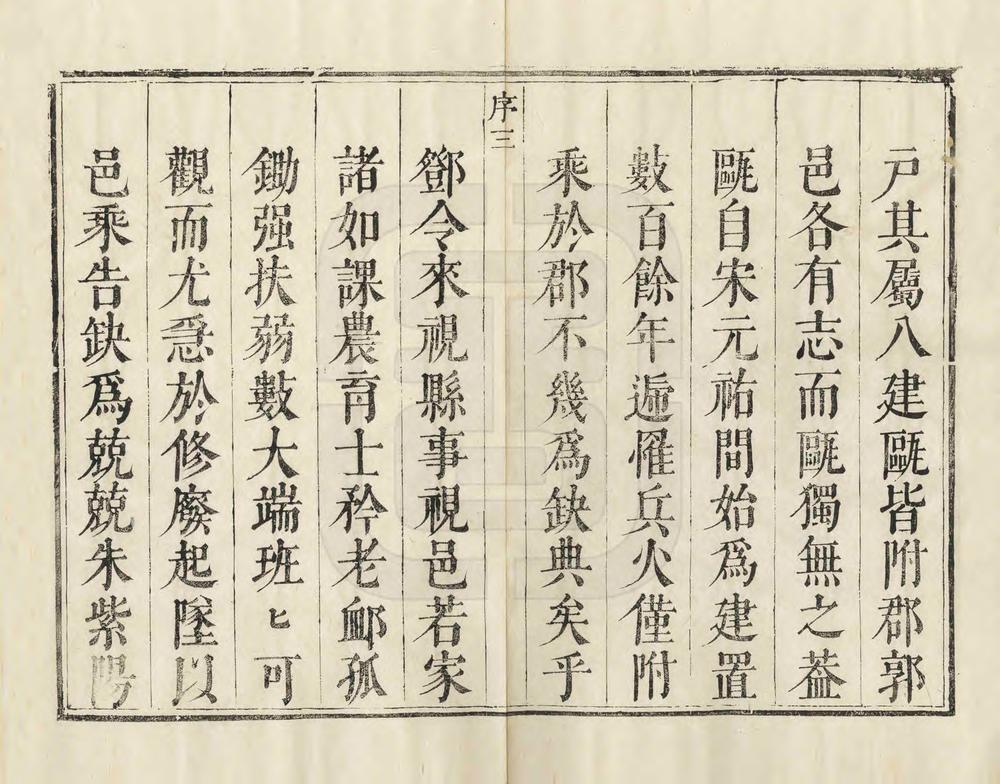 戸其屬八建甌皆附郡郭
邑各有志而甌獨無之葢
甌自宋元祐間始爲建置
數百餘年遍罹兵火僅附
乘於郡不幾爲缺典矣乎
序三
鄧令來視縣事視邑若家
諸如課農育士矜老卹孤
鋤强扶弱數大端班匕可
觀而尤急於修廢起墜以
邑乘告缺爲兢兢朱紫陽